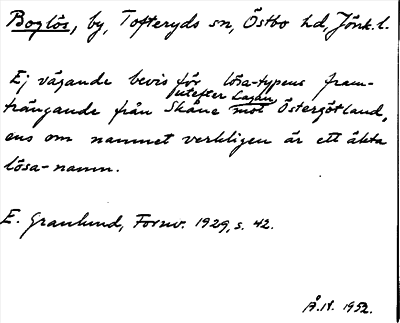 Boglös, by, Tofteryds sn, Östbo hd, Jönk. l.
Ej vägande bevis för lösa-typens fram-
utefter Lagan
trängande från Skåne mot Östergötland,
ens om namnet verkligen är ett äkta
lösa-namn.
E. Granlund, Fornv. 1929, s. 42.
Å. H. 1952.